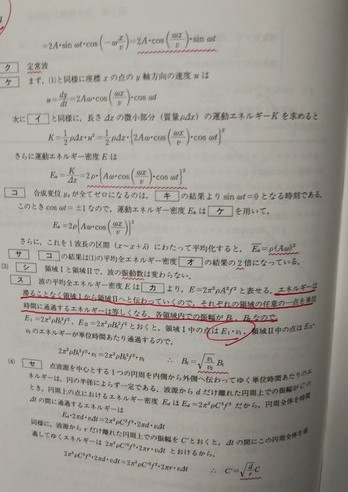 =2A・sin ωt・cos(−ω x/v)=2A・cos(ωx/v)・sin ωt
ク 定常波
ケ まず，(1)と同様に座標 x の点の y 軸方向の速度 u は
u=dy/dt=2Aω・cos(ωx/v)・cos ωt
次に イ と同様に，長さ Δx の微小部分（質量 ρΔx）の運動エネルギー K を求めると
K=1/2 ρΔx・u²=1/2 ρΔx・{2Aω・cos(ωx/v)・cos ωt}²
さらに運動エネルギー密度 E は
=K/Δx=2ρ・{Aω・cos(ωx/v)・cos ωt}²
コ 合成変位 が全てゼロになるのは， キ の結果より sin ωt=0 となる時刻である。
このとき cos ωt=±1 なので，運動エネルギー密度 は ケ を用いて，
=2ρ{Aω・cos(ωx/v)}²
さらに，これを1波長の区間（x～x+λ）にわたって平均化すると， =ρ(Aω)²
サ コ の結果は(1)の平均全エネルギー密度 オ の結果の2倍になっている。
(3) シ 領域Ⅰと領域Ⅱで，波の振動数は変わらない。
ス 波の平均全エネルギー密度 E は カ より，E=2π²ρA²f² と表せる。エネルギーは
滞ることなく領域Ⅰから領域Ⅱへと伝わっていくので，それぞれの領域の任意の一点を単位
時間に通過するエネルギーは等しくなる。各領域内での振幅が B₁，B₂ なので，
E₁=2π²ρB₁²f²，E₂=2π²ρB₂²f² とおくと，領域Ⅰ中の点は E₁・v₁，領域Ⅱ中の点は E₂・
v₂ のエネルギーが単位時間あたり通過するので，
2π²ρB₁²f²・v₁=2π²ρB₂²f²・v₂ ∴ B₂=√(v₁/v₂) B₁
(4) セ 点波源を中心とする1つの円周を内側から外側へ伝わってゆく単位時間あたりのエ
ネルギーは，円の半径によらず一定である。波源から d だけ離れた円周上での振幅が C の
とき，円周上の点におけるエネルギー密度 は =2π²ρC²f² だから，円周全体を時間
dt の間に通過するエネルギーは
・2πd・vdt=2π²ρC²f²・2πd・vdt
同様に，波源から r だけ離れた円周上での振幅を C′ とおくと，dt の間にこの円周全体を通
過してゆくエネルギーは 2π²ρC′²f²・2πr・vdt とおけるから，
2π²ρC²f²・2πd・vdt=2π²ρC′²f²・2πr・vdt ∴ C′=√(d/r) C